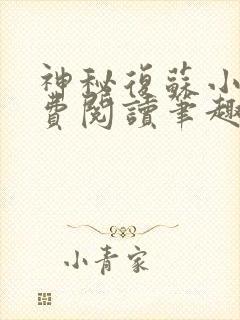 神秘復蘇小
費閱讀筆趣
小青家